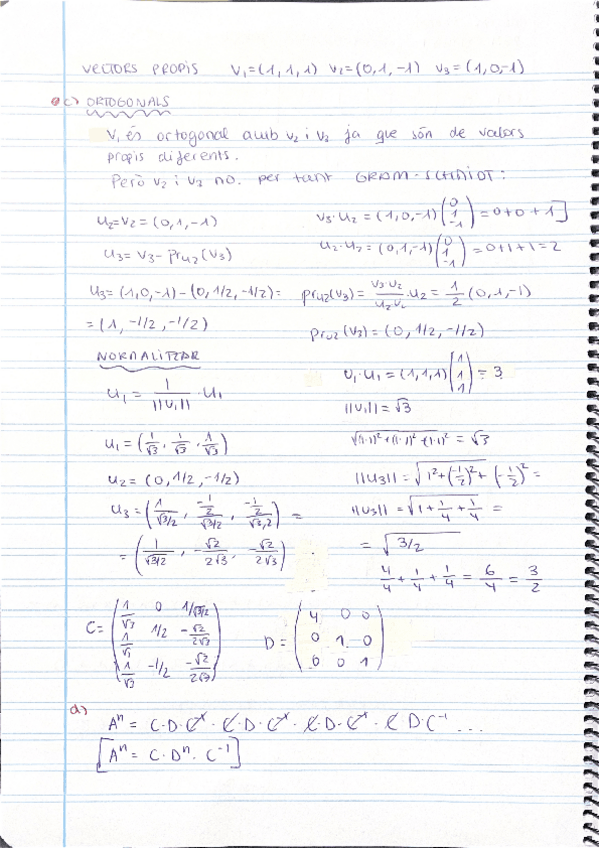 VECTORS PROPIS V₁=(1,1,1) V₂=(0,1,-1) V₃=(1,0,-1)
c) ORTOGONALS
V₁ és ortogonal amb V₂ i V₃ ja que són de valors
propis diferents.
Però V₂ i V₃ no. per tant GRAM-SCHMIDT:
u₂=V₂=(0,1,-1)
V₃·u₂ = (1,0,-1)(0 1 -1) = 0+0+1
u₃ = V₃ - pru₂(V₃)
u₂·u₂ = (0,1,-1)(0 1 -1) = 0+1+1=2
u₃=(1,0,-1)-(0,1/2,-1/2)=
pru₂(V₃)= V₃·u₂/u₂·u₂ · u₂ = 1/2 (0,1,-1)
=(1,-1/2,-1/2)
pru₂(V₃)=(0,1/2,-1/2)
NORMALITZAR
U₁·U₁ = (1,1,1)(1 1 1) = 3
u₁ = 1/||U₁|| · U₁
||U₁|| = √3
u₁=(1/√3, 1/√3, 1/√3)
√(1·1)²+(1·1)²+(1·1)² = √3
u₂=(0,1/2,-1/2)
||u₃|| = √1²+(-1/2)²+(-1/2)² =
u₃ = (1/√3/2, -1/2/√3/2, -1/2/√3/2) =
||u₃|| = √1+1/4+1/4 =
= (1/√3/2, -√2/2√3, -√2/2√3)
= √3/2
4/4+1/4+1/4 = 6/4 = 3/2
C= (1/√3 0 1/√3/2
1/√3 1/2 -√2/2√3
1/√3 -1/2 -√2/2√3)
D= (4 0 0
0 1 0
0 0 1)
d)
Aⁿ = C·D·C⁻¹·C·D·C⁻¹·C·D·C⁻¹·C·D·C⁻¹ ...
[Aⁿ = C·Dⁿ·C⁻¹]